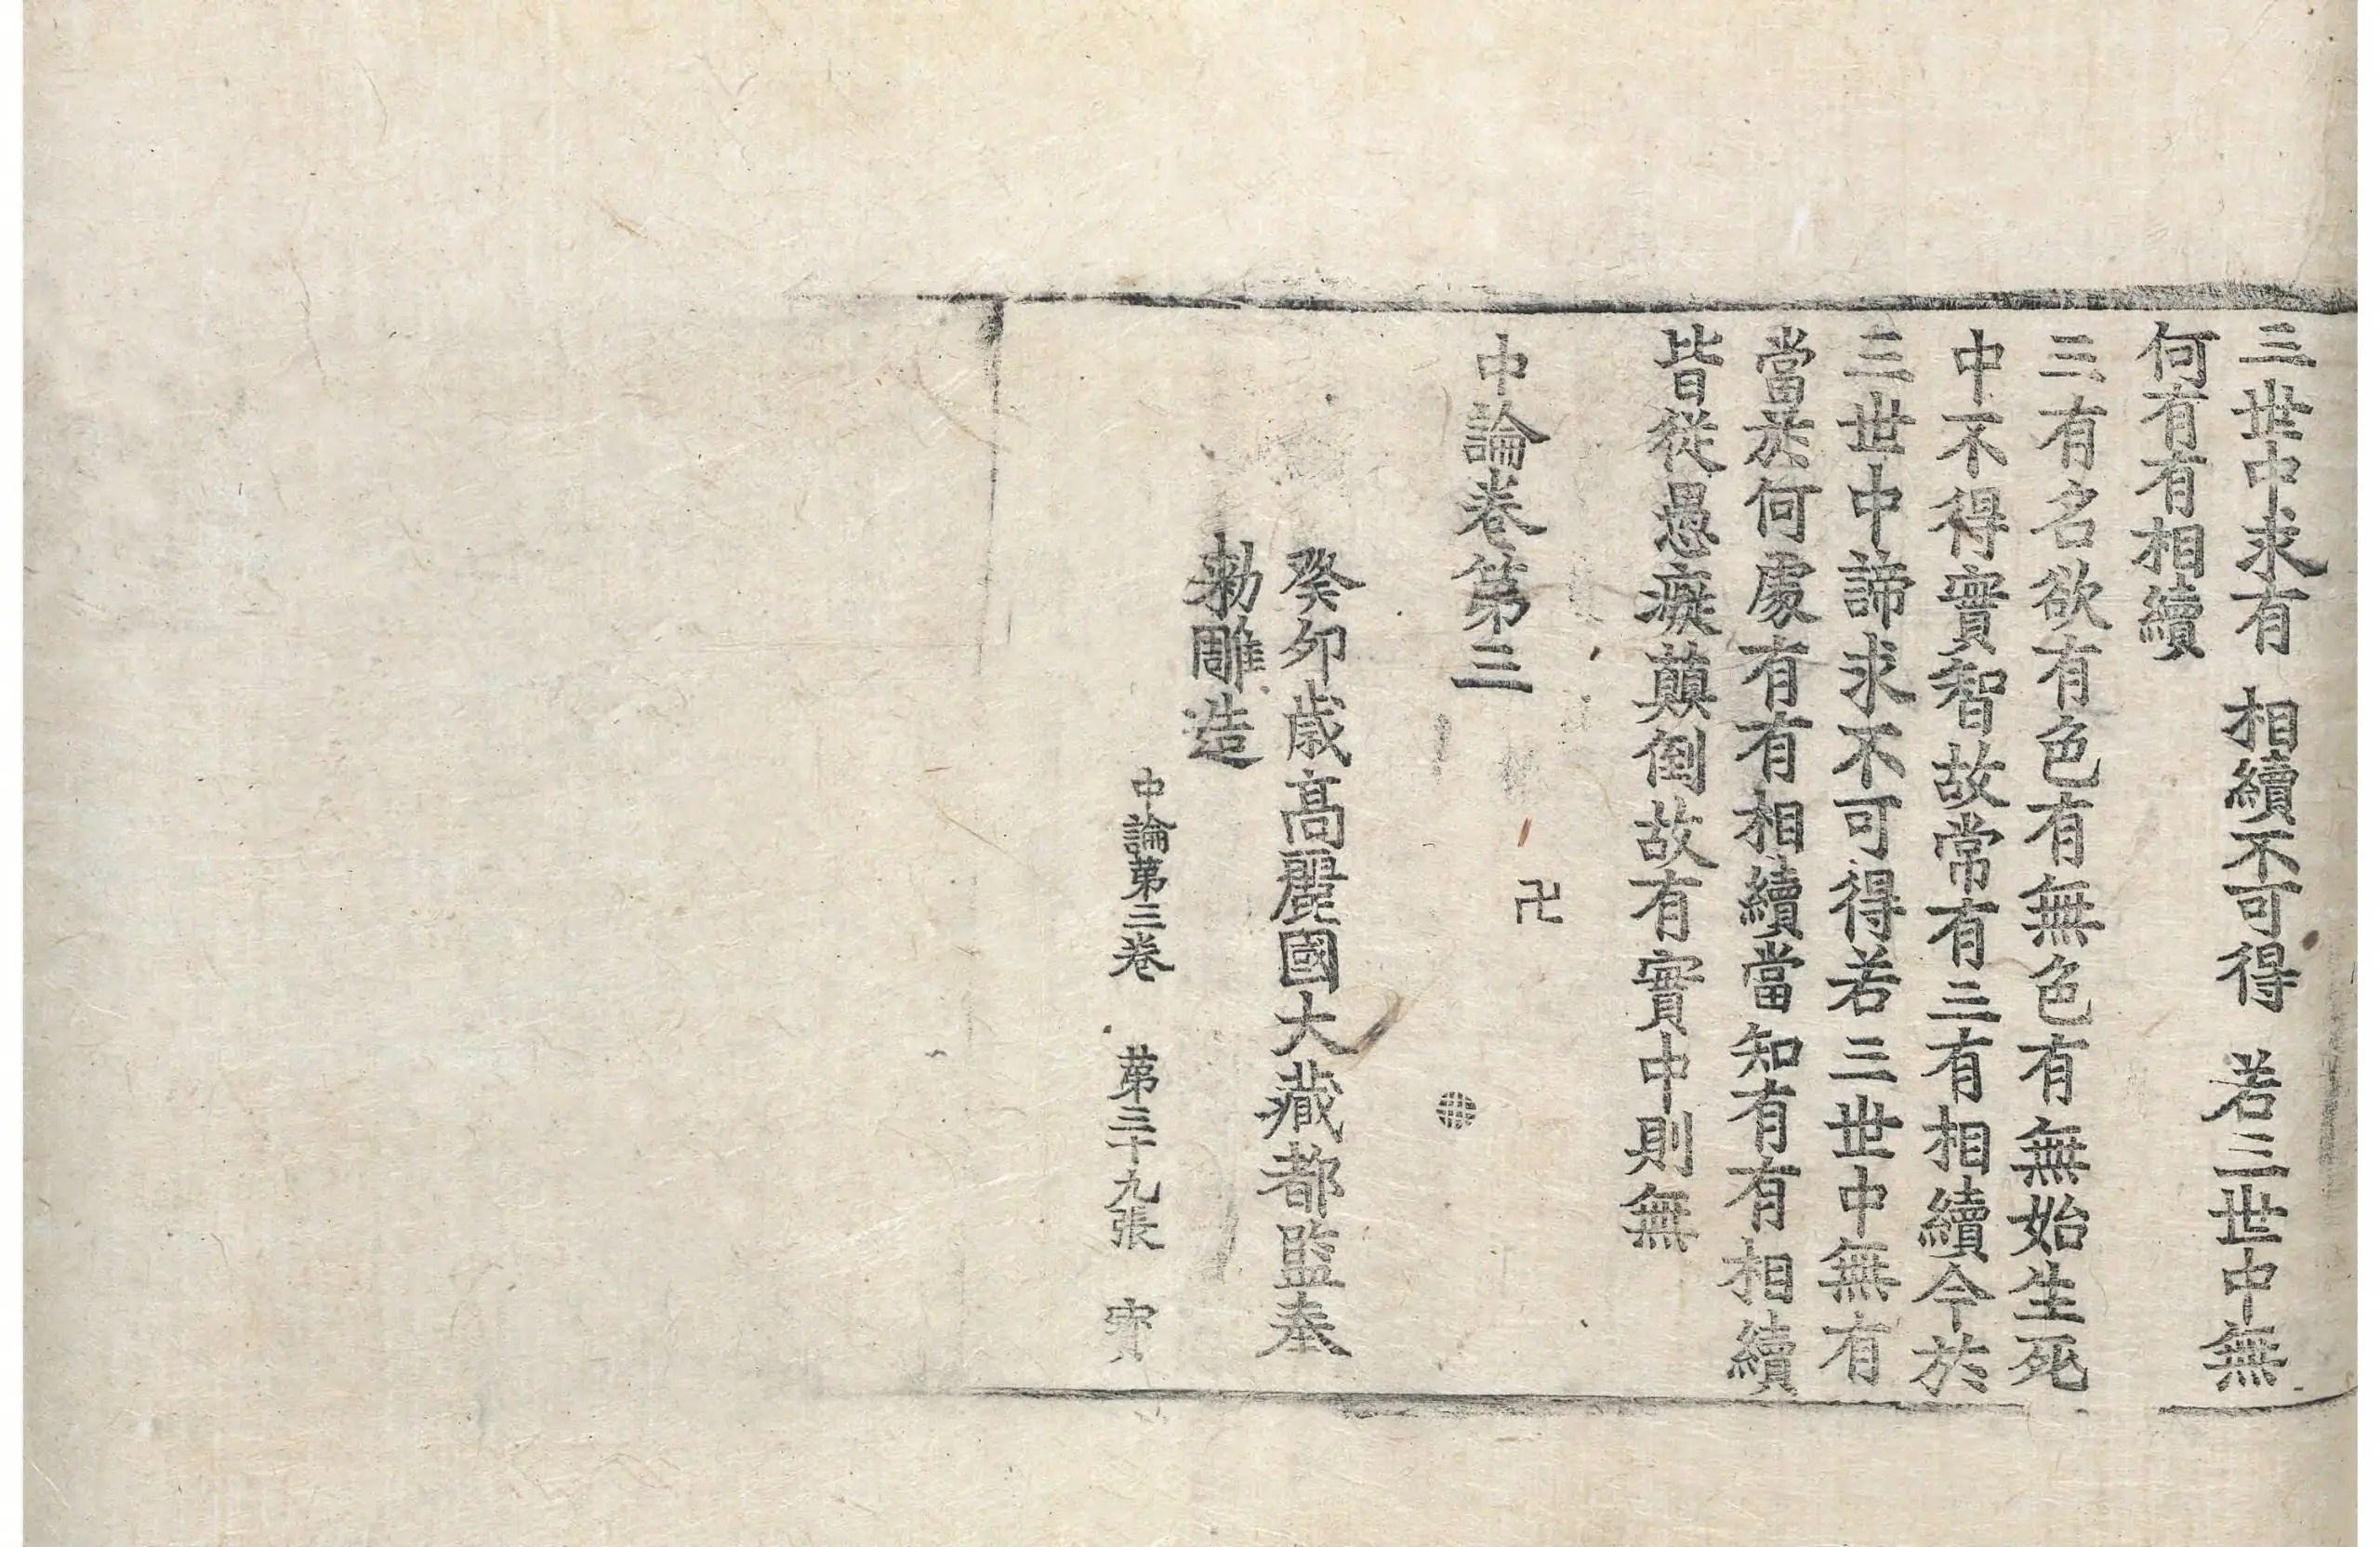 三世中求有　相續不可得　若三世中無
何有有相續
三有名欲有色有無色有無始生死
中不得實智故常有三有相續今於
三世中諦求不可得若三世中無有
當於何處有有相續當知有有相續
皆從愚癡顛倒故有實中則無
卍
中論卷第三
癸卯歲高麗國大藏都監奉
勅雕造
中論第三卷　第三十九張